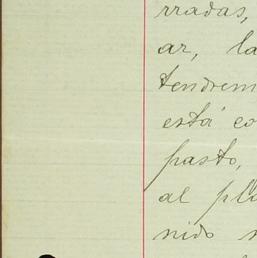 rradas,
ar, la
tendrem
está co
pasto,
al pla
nido